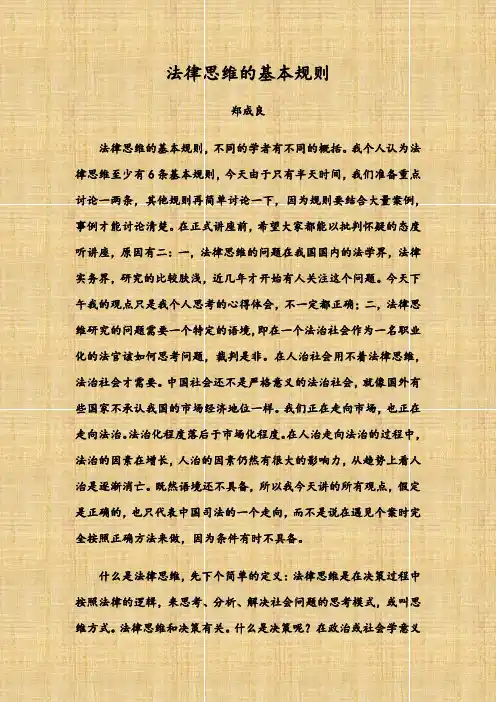 法律思维的基本规则
郑成良
法律思维的基本规则，不同的学者有不同的概括。我个人认为法
律思维至少有6条基本规则，今天由于只有半天时间，我们准备重点
讨论一两条，其他规则再简单讨论一下，因为规则要结合大量案例，
事例才能讨论清楚。在正式讲座前，希望大家都能以批判怀疑的态度
听讲座，原因有二：一，法律思维的问题在我国国内的法学界，法律
实务界，研究的比较肤浅，近几年才开始有人关注这个问题。今天下
午我的观点只是我个人思考的心得体会，不一定都正确；二，法律思
维研究的问题需要一个特定的语境，即在一个法治社会作为一名职业
化的法官该如何思考问题，裁判是非。在人治社会用不着法律思维，
法治社会才需要。中国社会还不是严格意义的法治社会，就像国外有
些国家不承认我国的市场经济地位一样。我们正在走向市场，也正在
走向法治。法治化程度落后于市场化程度。在人治走向法治的过程中，
法治的因素在增长，人治的因素仍然有很大的影响力，从趋势上看人
治是逐渐消亡。既然语境还不具备，所以我今天讲的所有观点，假定
是正确的，也只代表中国司法的一个走向，而不是说在遇见个案时完
全按照正确方法来做，因为条件有时不具备。
什么是法律思维，先下个简单的定义：法律思维是在决策过程中
按照法律的逻辑，来思考、分析、解决社会问题的思考模式，或叫思
维方式。法律思维和决策有关。什么是决策呢？在政治或社会学意义